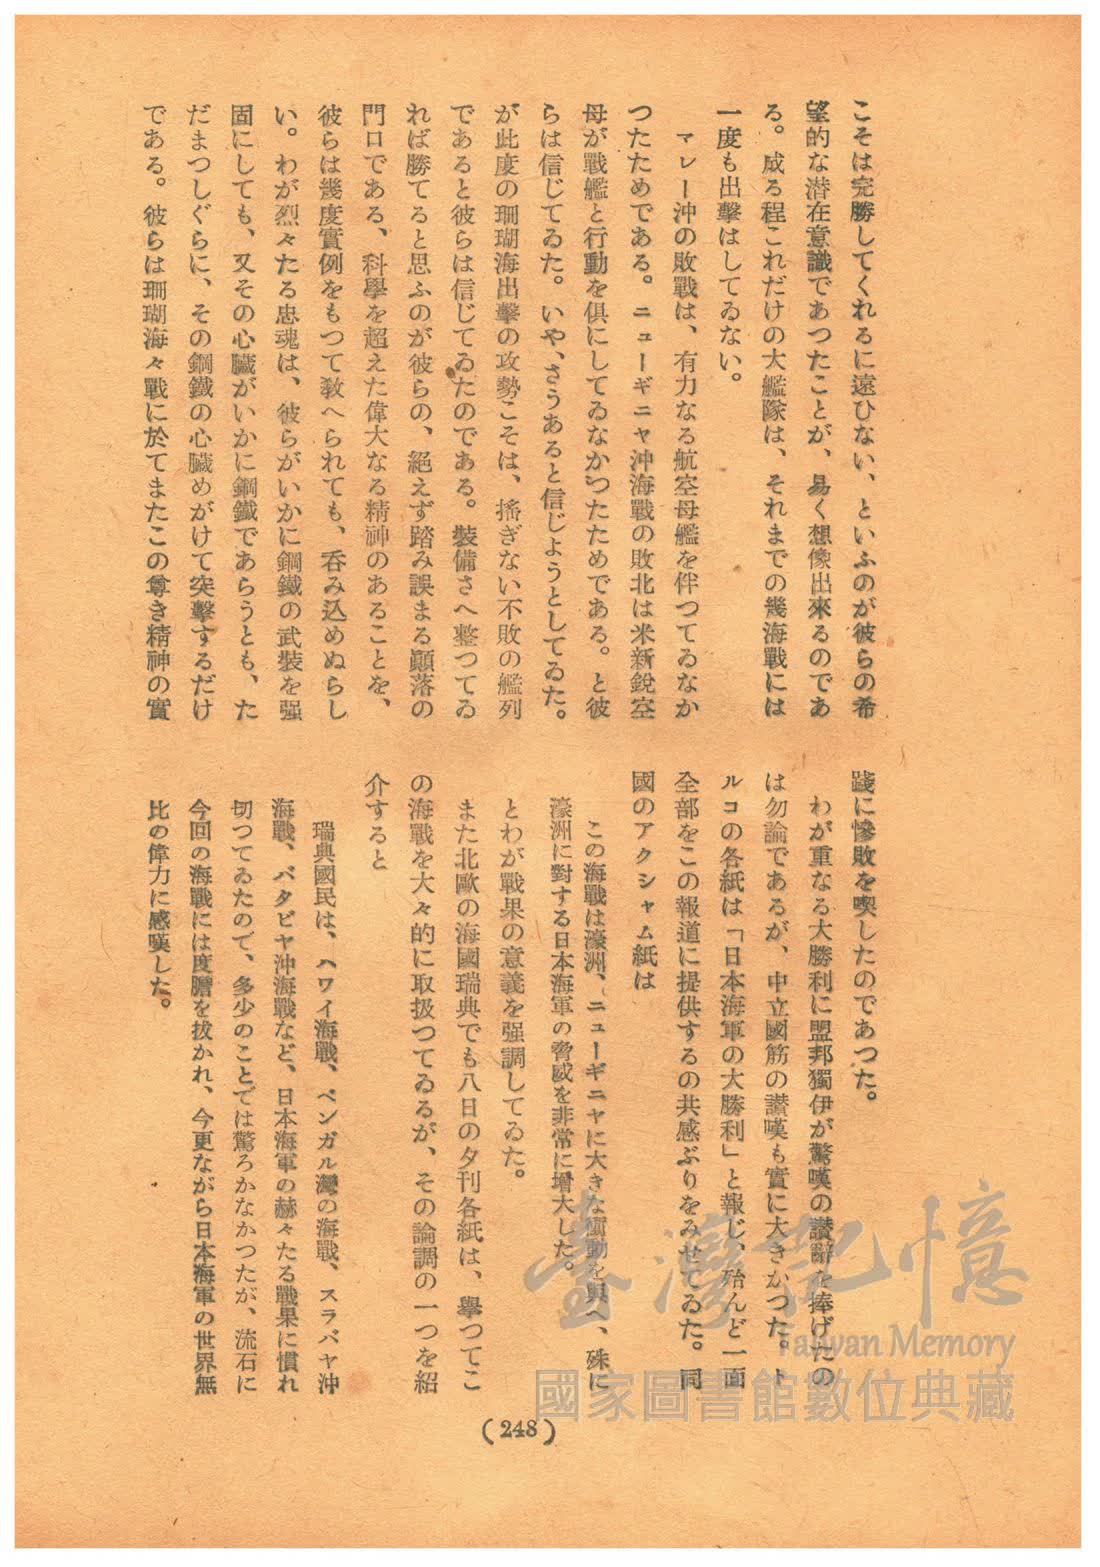 こそは完勝してくれるに違ひない、といふのが彼らの希
望的な潜在意識であつたことが、易く想像出來るのであ
る。成る程これだけの大艦隊は、それまでの幾海戰には
一度も出擊はしてゐない。
マレー沖の敗戰は、有力なる航空母艦を伴つてゐなか
つたためである。ニューギニヤ沖海戰の敗北は米新銳空
母が戰艦と行動を倶にしてゐなかつたためである。と彼
らは信じてゐた。いや、さうあると信じようとしてゐた。
が此度の珊瑚海出擊の攻勢こそは、搖ぎない不敗の艦列
であると彼らは信じてゐたのである。裝備さへ整つてゐ
れば勝てると思ふのが彼らの、絕えず踏み誤まる顚落の
門口である、科學を超えた偉大なる精神のあることを、
彼らは幾度實例をもつて敎へられても、呑み込めぬらし
い。わが烈々たる忠魂は、彼らがいかに鋼鐵の武裝を强
固にしても、又その心臟がいかに鋼鐵であらうとも、た
だまつしぐらに、その鋼鐵の心臟めがけて突擊するだけ
である。彼らは珊瑚海々戰に於てまたこの尊き精神の實
踐に慘敗を喫したのであつた。
わが重なる大勝利に盟邦獨伊が驚嘆の讃辭を捧げたの
は勿論であるが、中立國筋の讃嘆も實に大きかつた。ト
ルコの各紙は「日本海軍の大勝利」と報じ、殆んど一面
全部をこの報道に提供するの共感ぶりをみせてゐた。同
國のアクシャム紙は
この海戰は濠洲、ニューギニヤに大きな衝動を與へ、殊に
濠洲に對する日本海軍の脅威を非常に增大した。
とわが戰果の意義を强調してゐた。
また北歐の海國瑞典でも八日の夕刊各紙は、擧つてこ
の海戰を大々的に取扱つてゐるが、その論調の一つを紹
介すると
瑞典國民は、ハワイ海戰、ベンガル灣の海戰、スラバヤ沖
海戰、バタビヤ沖海戰など、日本海軍の赫々たる戰果に慣れ
切つてゐたので、多少のことでは驚ろかなかつたが、流石に
今回の海戰には度膽を拔かれ、今更ながら日本海軍の世界無
比の偉力に感嘆した。
(248)
臺灣記憶
Taiwan Memory
國家圖書館數位典藏